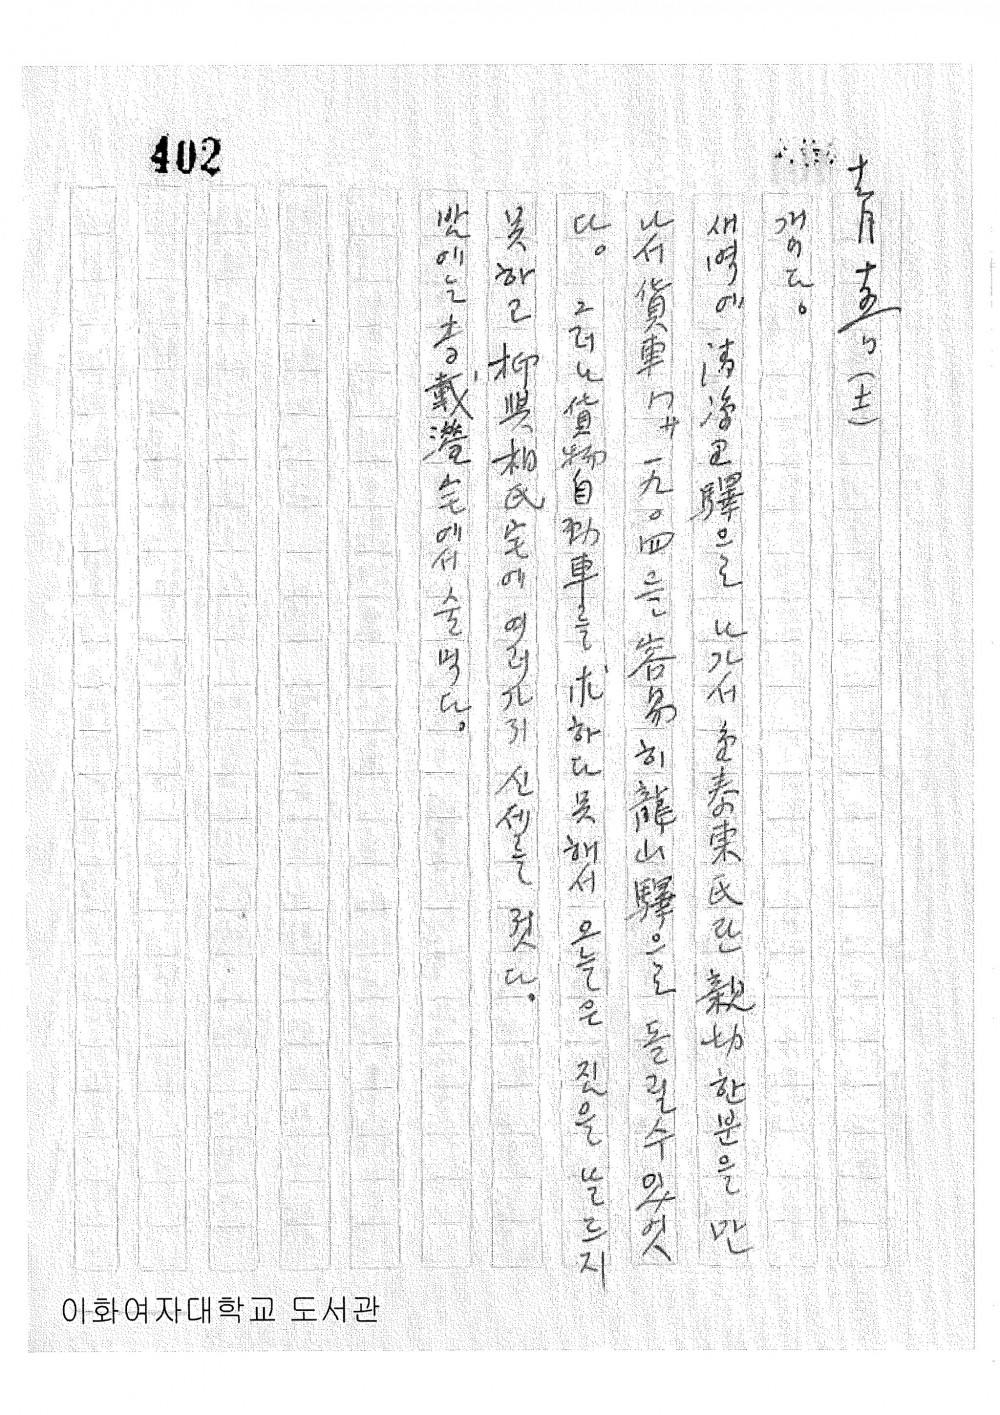 402
十一月 十五日 (土)
개이다.
새벽에 淸凉里驛으로 나가서 金泰東氏란 親切한분을 만
나서 貨車 ワム 一九〇四을 容易히 龍山驛으로 돌릴수있엇
다. 그러나 貨物自動車를 求하다 못해서 오늘은 짐을 날르지
못하고 柳興相氏宅에 여러가지 신세를 젓다.
밤에는 李載瀅宅에서 술먹다.
이화여자대학교 도서관